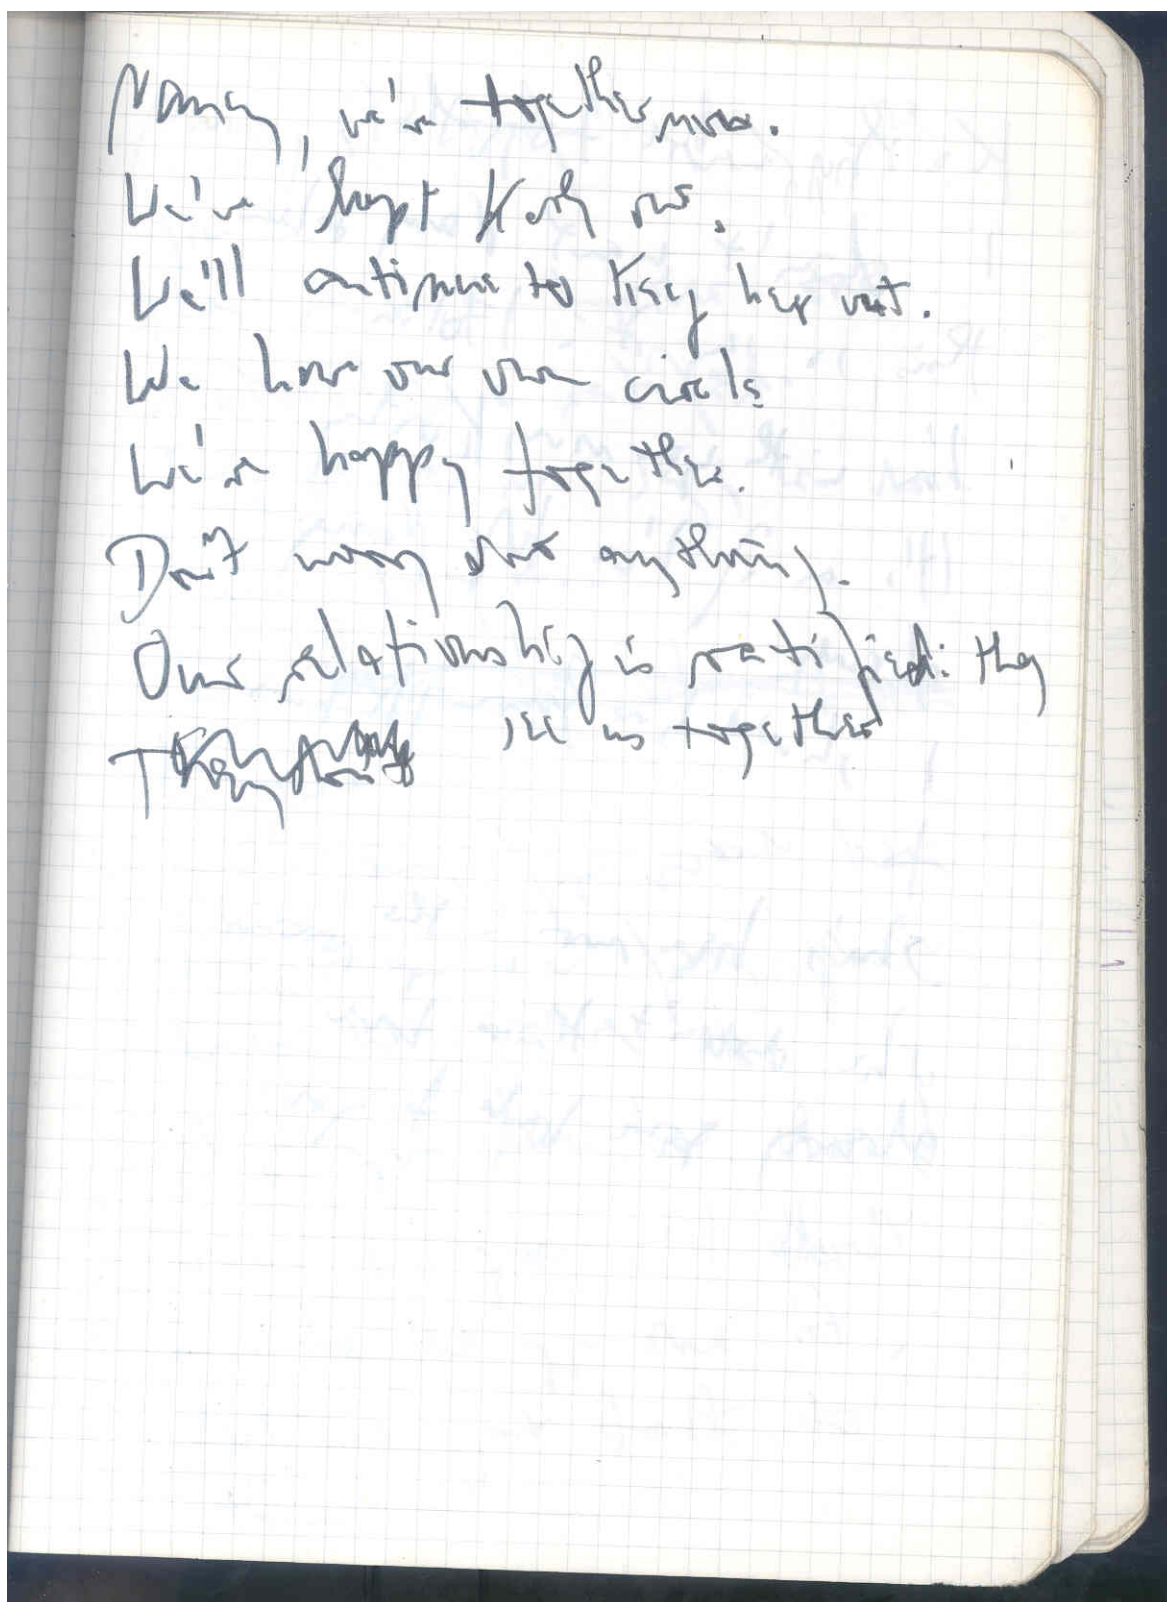 Nancy, we're together now.
We've kept Kathy out.
We'll continue to keep her out.
We have our own circle
We're happy together.
Don't worry about anything.
Our relationship is ratified: they
see us together